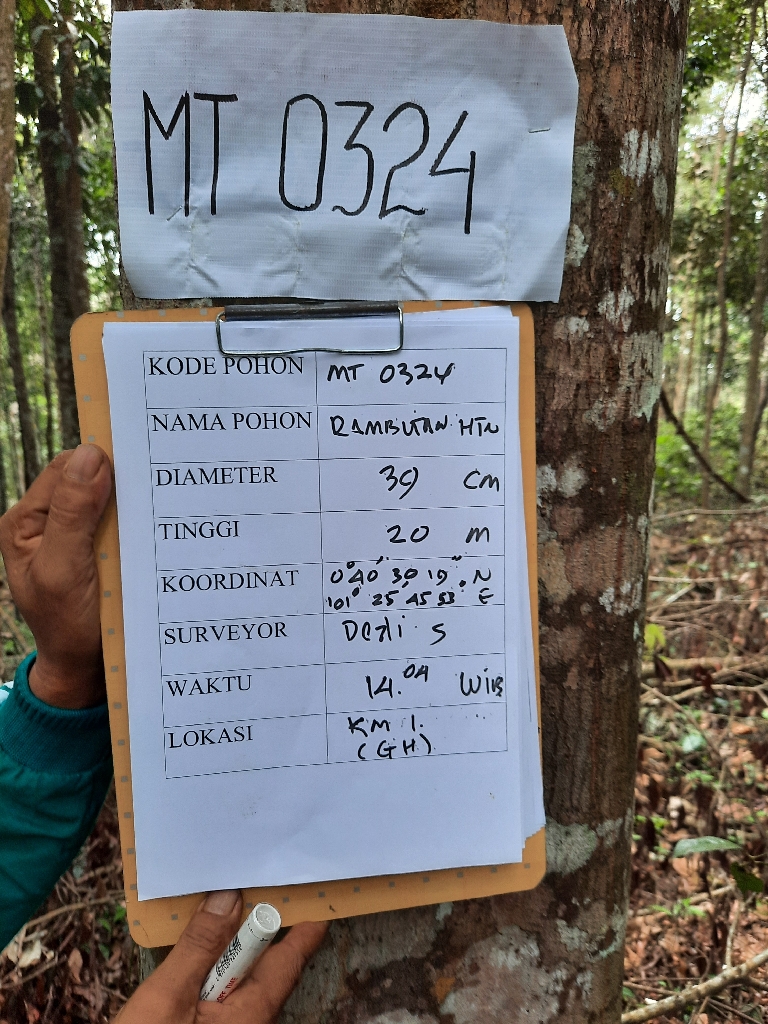 MT 0324
KODE POHON MT 0324
NAMA POHON RAMBUTAN HTN
DIAMETER 39 cm
TINGGI 20 m
KOORDINAT 0° 40' 30 19" N
101° 25' 45 53" E
SURVEYOR Dedi S
WAKTU 14.04 WIB
LOKASI KM 1.
(GH)